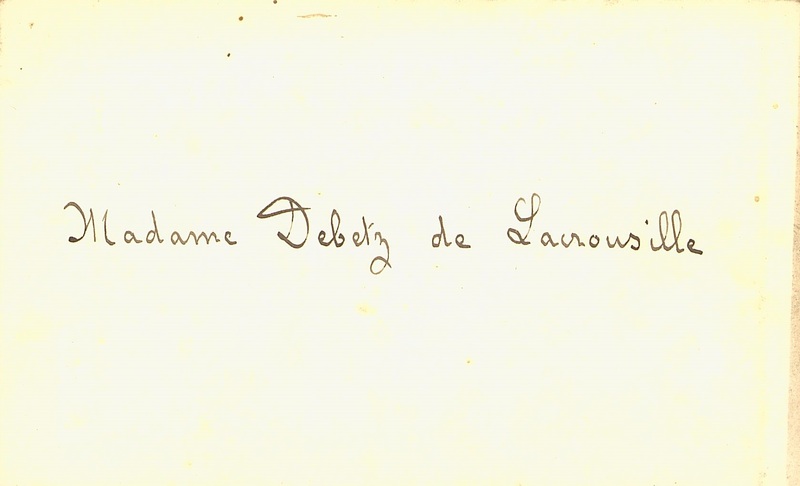 Madame Debetz de Lacrousille